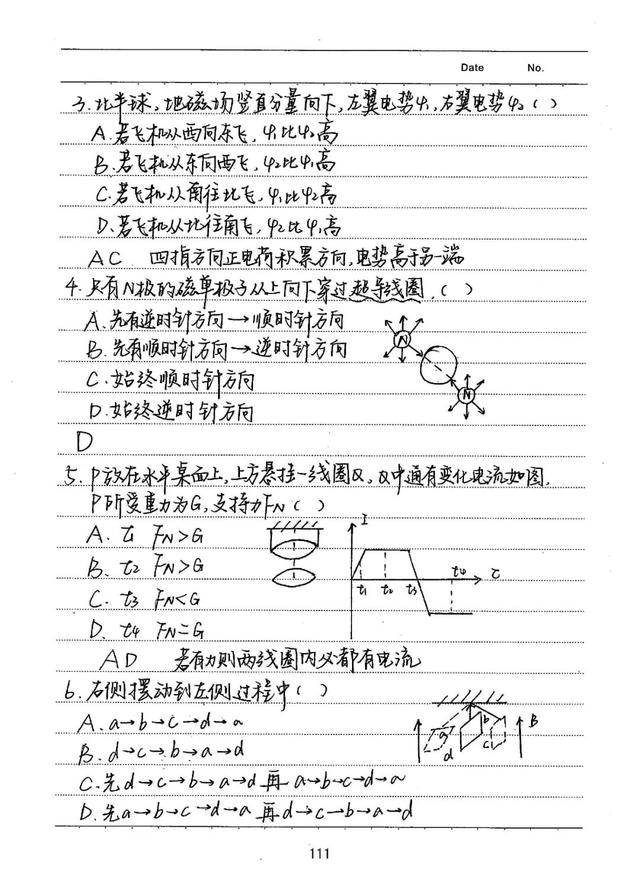 Date No.
3. 北半球,地磁场竖直分量向下,左翼电势φ₁,右翼电势φ₂( )
A. 若飞机从西向东飞,φ₁比φ₂高
B. 若飞机从东向西飞,φ₂比φ₁高
C. 若飞机从南往北飞,φ₁比φ₂高
D. 若飞机从北往南飞,φ₂比φ₁高
AC 四指方向正电荷积累方向,电势高于另一端
4. 只有N极的磁单极子从上向下穿过超导线圈.( )
A. 先有逆时针方向→顺时针方向
B. 先有顺时针方向→逆时针方向
C. 始终顺时针方向
D. 始终逆时针方向
N
N
D
5. P放在水平桌面上,上方悬挂一线圈Q,Q中通有变化电流如图.
P所受重力为G,支持力FN( )
A. t₁ FN>G
B. t₂ FN>G
C. t₃ FN<G
D. t₄ FN=G
I
t₁ t₂ t₃ t₄ t
AD 若有力则两线圈内必都有电流
6. 右侧摆动到左侧过程中( )
A. a→b→c→d→a
B. d→c→b→a→d
C. 先d→c→b→a→d再a→b→c→d→a
D. 先a→b→c→d→a再d→c→b→a→d
a b c d B
111